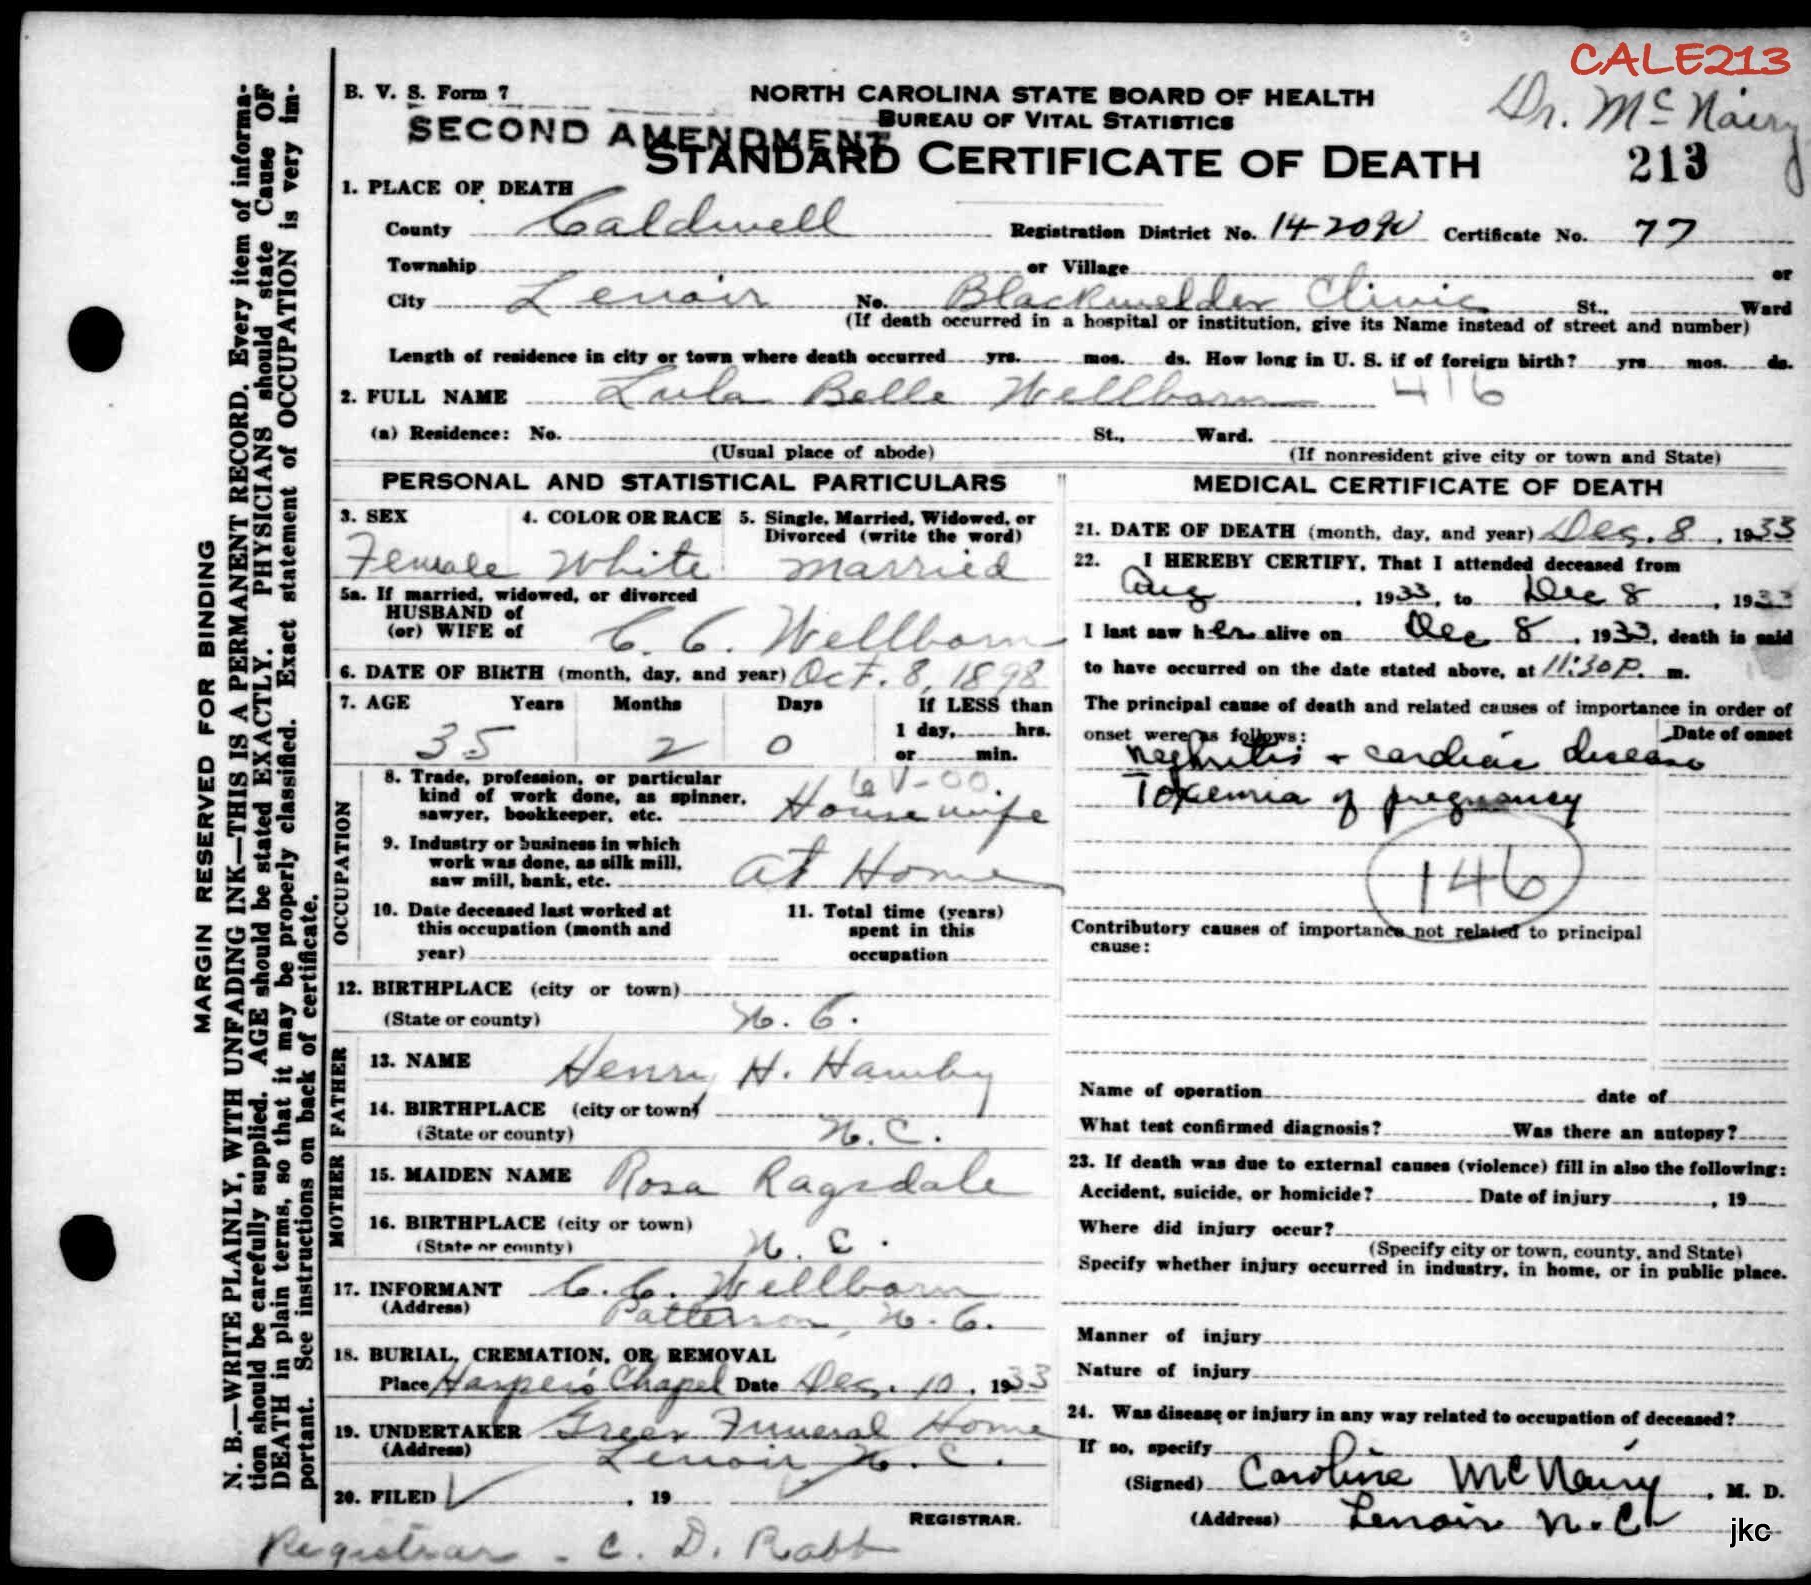 CALE213
Dr. McNairy
B. V. S. Form 7
NORTH CAROLINA STATE BOARD OF HEALTH
BUREAU OF VITAL STATISTICS
SECOND AMENDMENT
STANDARD CERTIFICATE OF DEATH
213
1. PLACE OF DEATH
County Caldwell Registration District No. 14-2090 Certificate No. 77
Township or Village or
City Lenoir No. Blackwelder Clinic St., Ward
(If death occurred in a hospital or institution, give its Name instead of street and number)
Length of residence in city or town where death occurred yrs. mos. ds. How long in U. S. if of foreign birth? yrs mos. ds.
2. FULL NAME Lula Belle Wellborn 416
(a) Residence: No. St., Ward.
(Usual place of abode) (If nonresident give city or town and State)
PERSONAL AND STATISTICAL PARTICULARS
3. SEX 4. COLOR OR RACE 5. Single, Married, Widowed, or
Divorced (write the word)
Female White Married
5a. If married, widowed, or divorced
HUSBAND of
(or) WIFE of C. C. Wellborn
6. DATE OF BIRTH (month, day, and year) Oct. 8, 1898
7. AGE Years Months Days If LESS than
1 day, hrs.
35 2 0 or min.
OCCUPATION
8. Trade, profession, or particular
kind of work done, as spinner,
sawyer, bookkeeper, etc. Housewife
6V-00
9. Industry or business in which
work was done, as silk mill,
saw mill, bank, etc. at Home
10. Date deceased last worked at
this occupation (month and
year)
11. Total time (years)
spent in this
occupation
12. BIRTHPLACE (city or town)
(State or county) N. C.
FATHER
13. NAME Henry H. Hamby
14. BIRTHPLACE (city or town)
(State or county) N. C.
MOTHER
15. MAIDEN NAME Rosa Ragsdale
16. BIRTHPLACE (city or town)
(State or county) N. C.
17. INFORMANT C. C. Wellborn
(Address) Patterson, N. C.
18. BURIAL, CREMATION, OR REMOVAL
Place Harper's Chapel Date Dec. 10, 1933
19. UNDERTAKER Greer Funeral Home
(Address) Lenoir N. C.
20. FILED , 19
REGISTRAR.
Registrar - C. D. Rabb
MEDICAL CERTIFICATE OF DEATH
21. DATE OF DEATH (month, day, and year) Dec. 8, 1933
22. I HEREBY CERTIFY, That I attended deceased from
Aug , 1933, to Dec 8 , 1933
I last saw her alive on Dec 8 , 1933, death is said
to have occurred on the date stated above, at 11:30 P. m.
The principal cause of death and related causes of importance in order of
onset were as follows: Date of onset
Nephritis + cardiac disease
Toxemia of pregnancy
146
Contributory causes of importance not related to principal
cause:
Name of operation date of
What test confirmed diagnosis? Was there an autopsy?
23. If death was due to external causes (violence) fill in also the following:
Accident, suicide, or homicide? Date of injury , 19
Where did injury occur?
(Specify city or town, county, and State)
Specify whether injury occurred in industry, in home, or in public place.
Manner of injury
Nature of injury
24. Was disease or injury in any way related to occupation of deceased?
If so, specify
(Signed) Caroline McNairy , M. D.
(Address) Lenoir N. C.
jkc
MARGIN RESERVED FOR BINDING
N. B.—WRITE PLAINLY, WITH UNFADING INK—THIS IS A PERMANENT RECORD. Every item of informa-
tion should be carefully supplied. AGE should be stated EXACTLY. PHYSICIANS should state Cause OF
DEATH in plain terms, so that it may be properly classified. Exact statement of OCCUPATION is very im-
portant. See instructions on back of certificate.